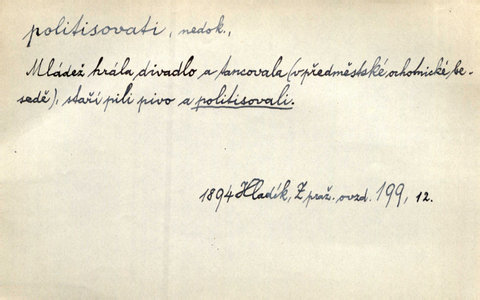 politisovati, nedok.,
Mládež hrála divadlo a tancovala (v předměstské ochotnické be-
sedě), staří pili pivo a politisovali.
1894 Hladík, Z praž. ovzd. 199, 12.